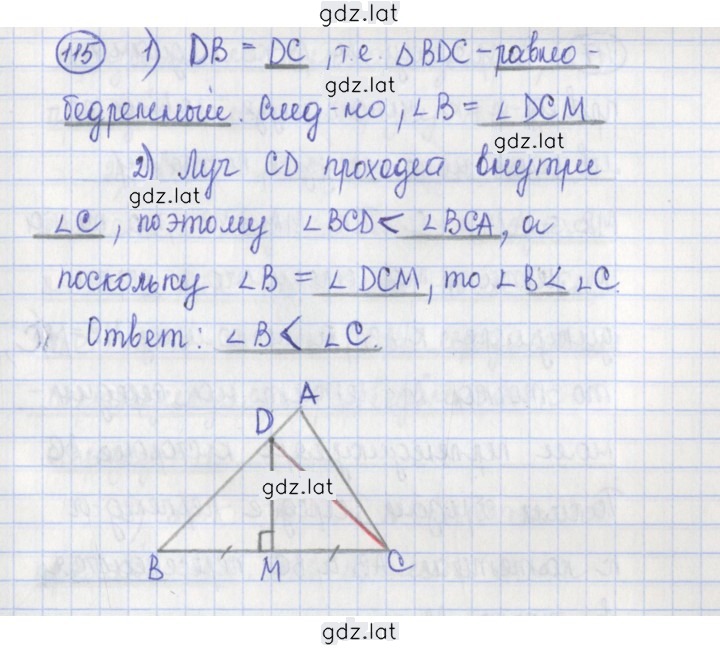 gdz.lat
115 1) DB = DC, т.е. △BDC – равно-
gdz.lat
бедренный. След-но, ∠B = ∠DCM
gdz.lat
2) Луч CD проходеа внутри
gdz.lat
∠C, поэтому ∠BCD < ∠BCA, а
поскольку ∠B = ∠DCM, то ∠B < ∠C.
Ответ: ∠B < ∠C.
A
D
gdz.lat
B M C
gdz.lat